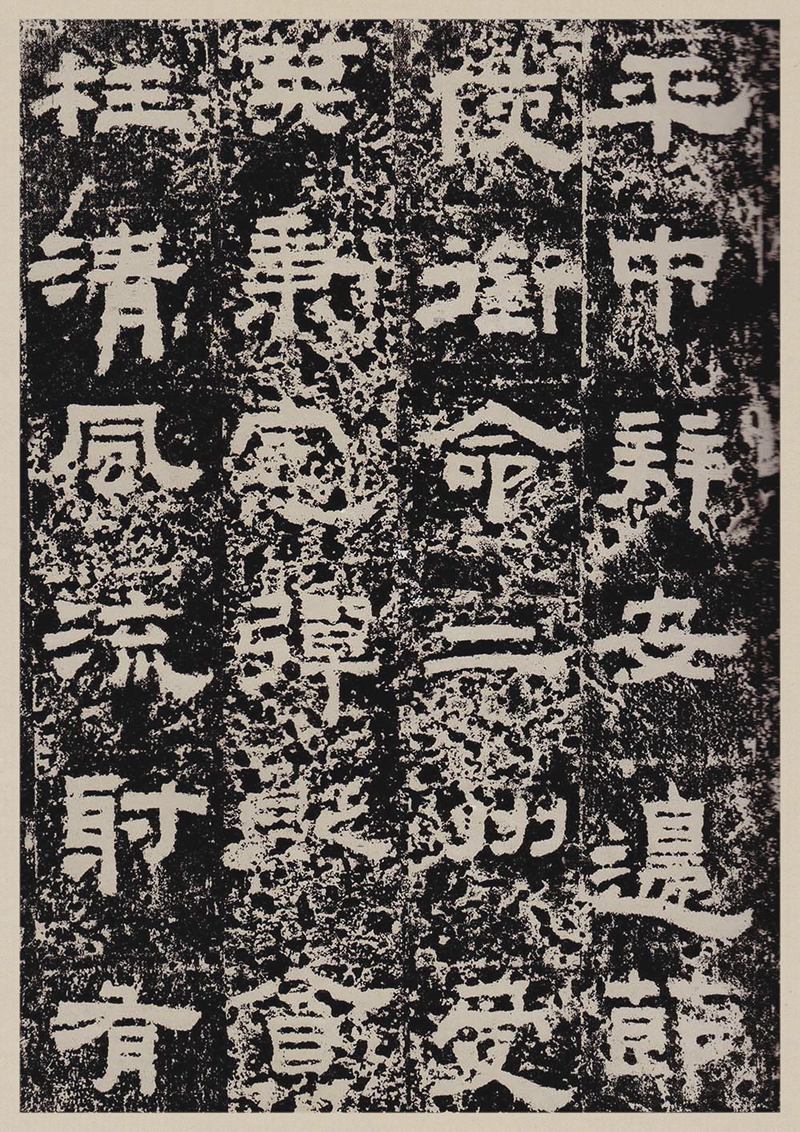 平中拜安邊節
使銜命二州受
莢秉憲彈貶貪
枉清風流射有